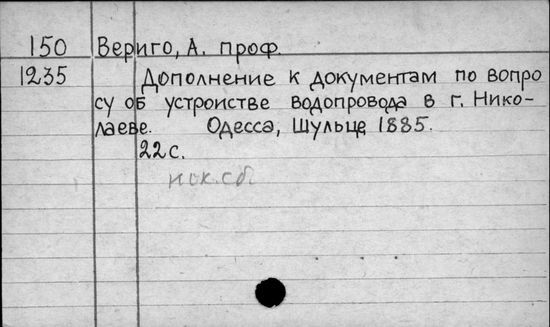 150 Вериго, А. проф.
1235 Дополнение к документам по вопро
су об устроистве водопровода в г. Нико-
лаеве. Одесса, Шульце, 1885.
22 с.
иск. сб.